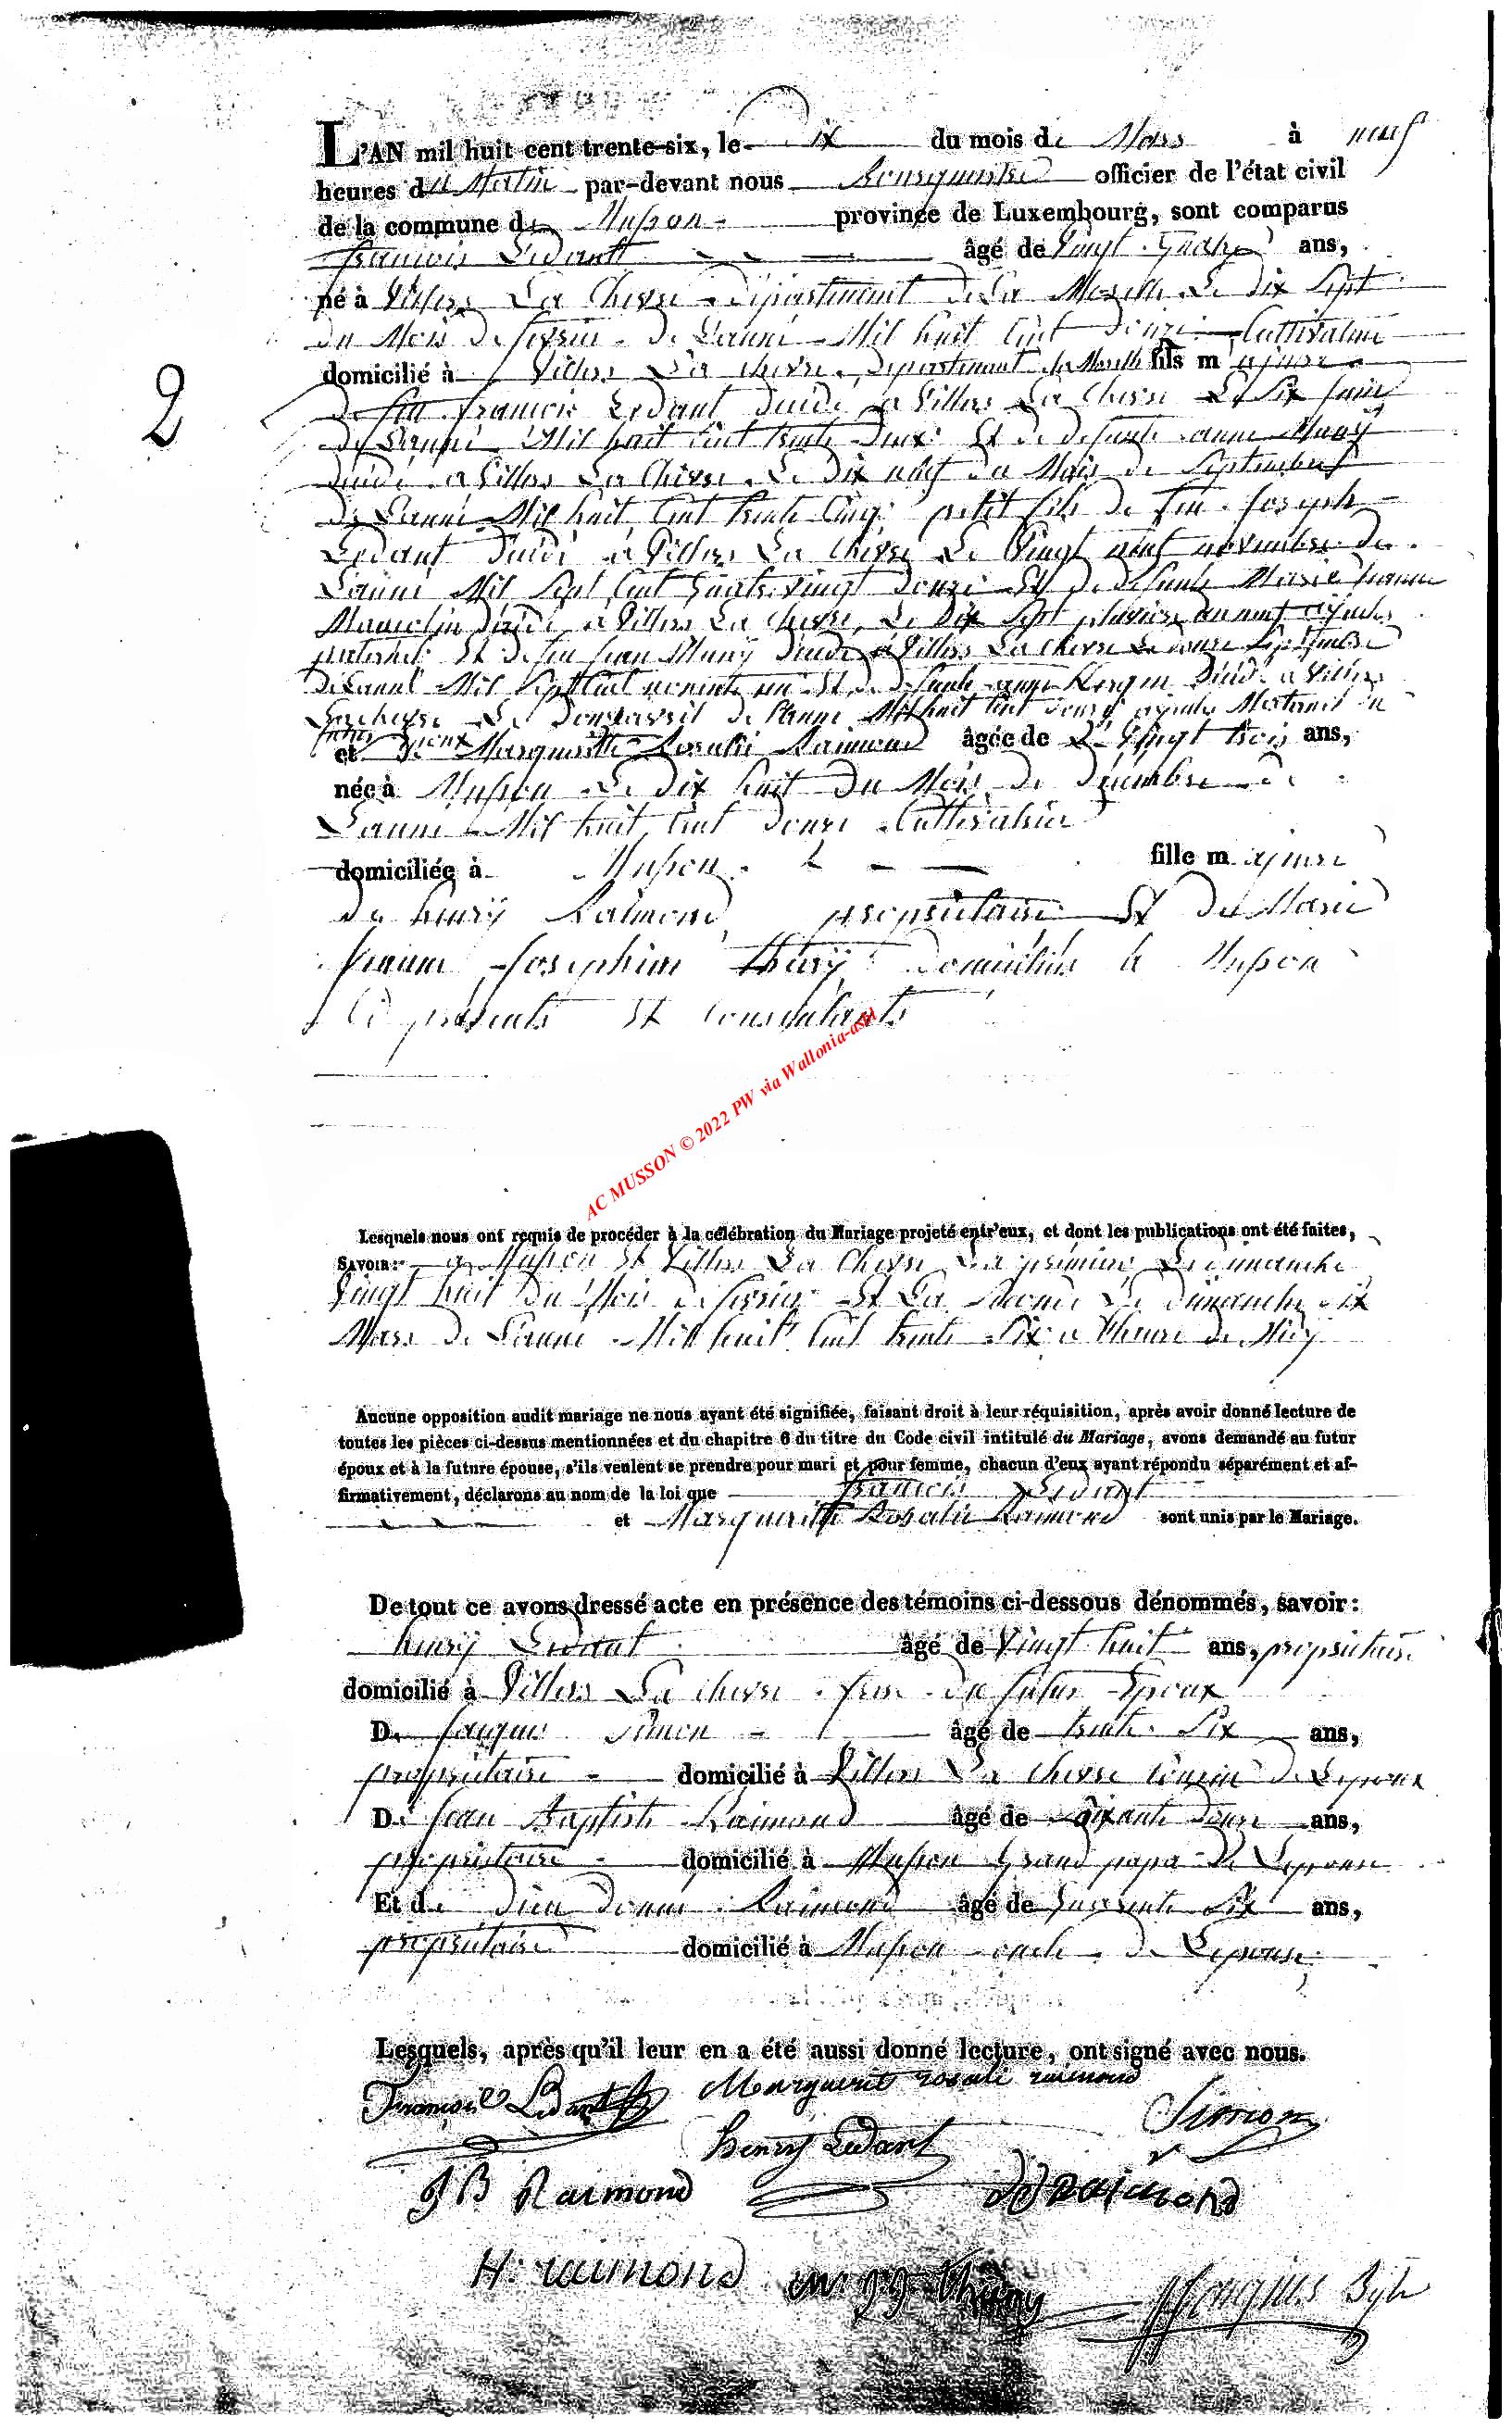 L'AN mil huit cent trente-six, le Dix du mois de Mars à neuf
heures du Matin par-devant nous Bourguemestre officier de l'état civil
de la commune de Musson province de Luxembourg, sont comparus
francois Ledant âgé de Vingt quatre ans,
né à Villers La Chevre Departement de La Moselle Le dix Sept
du Mois de fevrier de L'anné Mil huit Cent douze Cultivateur
domicilié à Villers La Chevre, Departement de la Moselle fils majeur
de feu francois Ledant décidé a Villers La Chevre Le Six juin
de L'anné Mil huit Cent trente deux Et de defunte anne Muny
décidé a Villers La Chevre Le dix neuf du Mois de Septembre
de L'anné Mil huit Cent trente Cinq petit fils de feu Joseph
Ledant décidé a Villers La Chevre Le Vingt neuf novembre de
L'anné Mil Sept Cent quatre vingt douze Et de defunte Marie jeanne
décidé a Villers La Chevre, Le Dix Sept pluviose an neuf ayeules
paternel Et de feu jean Muny décidé a Villers La Chevre Le douze Septembre
de L'anné Mil Sept Cent nonente un Et de defunte anne décidé a Villers
La chevre Le Douze avril de L'anne Mil huit Cent douze ayeules Maternel du
futur Epoux
et De Marguerite Rosalie Raimond âgée de Vingt trois ans,
née à Musson Le dix huit Du Mois de decembre de
L'anné Mil huit Cent douze Cultivatrice
domiciliée à Musson fille majeure
de henry Raimond propriétaire Et de Marie
jeanne Josephine thiry domiciliés à Musson
Ci présents Et Consentants
AC MUSSON © 2022 PW via Wallonia-asbl
Lesquels nous ont requis de procéder à la célébration du Mariage projeté entr'eux, et dont les publications ont été faites,
SAVOIR: a Musson Et Villers La Chevre La premiere Le dimanche
Vingt huit du Mois de fevrier Et La Seconde Le dimanche Six
Mars de L'anné Mil huit Cent trente Six a l'heure de Midy
Aucune opposition audit mariage ne nous ayant été signifiée, faisant droit à leur réquisition, après avoir donné lecture de
toutes les pièces ci-dessus mentionnées et du chapitre 6 du titre du Code civil intitulé du Mariage, avons demandé au futur
époux et à la future épouse, s'ils veulent se prendre pour mari et pour femme, chacun d'eux ayant répondu séparément et af-
firmativement, déclarons au nom de la loi que francois Ledant
et Marguerite Rosalie Raimond sont unis par le Mariage.
De tout ce avons dressé acte en présence des témoins ci-dessous dénommés, savoir:
henry Ledant âgé de Vingt huit ans, propriétaire
domicilié à Villers La Chevre frere du futur Epoux
De Jacques Simon âgé de trente Six ans,
propriétaire domicilié à Villers La Chevre Cousin de L'epoux
De Jean Baptiste Raimond âgé de Soixante Douze ans,
propriétaire domicilié à Musson Grand papa De L'epouse
Et de dieu donne Raimond âgé de quarante Six ans,
propriétaire domicilié à Musson oncle de L'epouse
Lesquels, après qu'il leur en a été aussi donné lecture, ont signé avec nous.
Francois Ledant Marguerite rosalie raimond
Simon
henry Ledant
J B Raimond DD Raimond
H. raimond m j j thiry
2